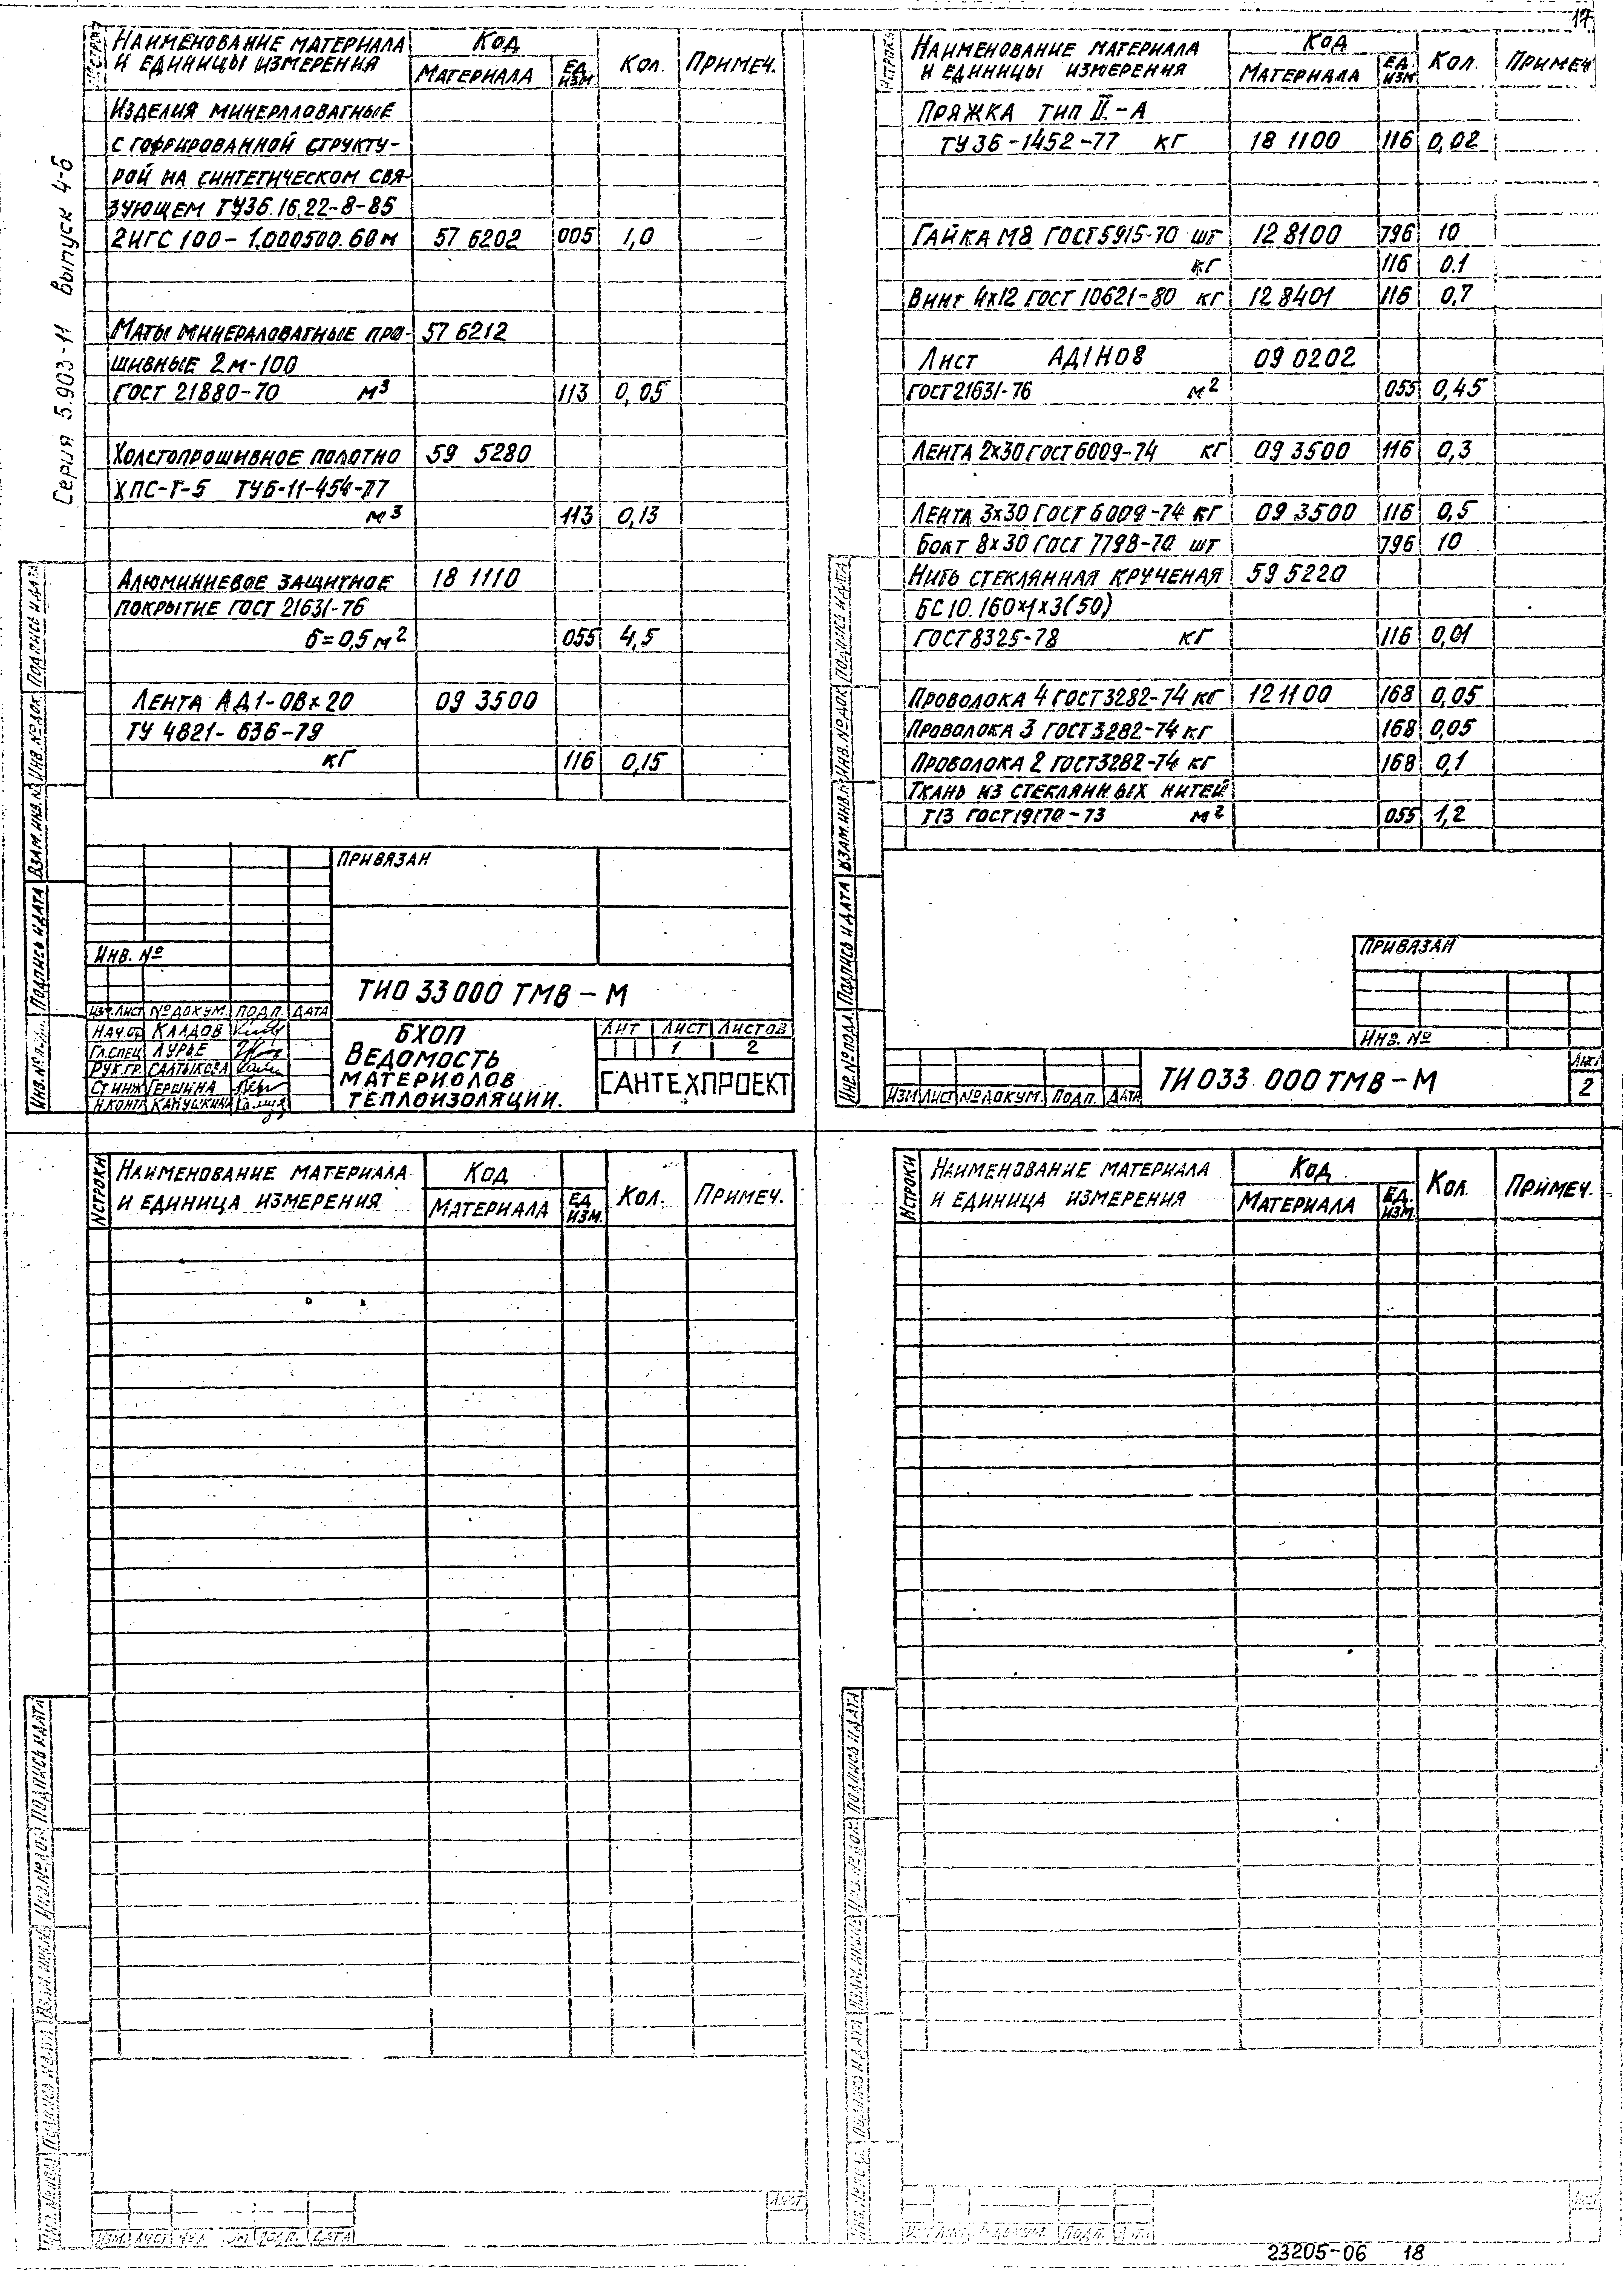 17
Серия 5.903-11 Выпуск 4-6
Наименование материала и единицы измерения Код Материала Ед. изм Кол. Примеч.
Изделия минералловатные
с гофрированной структу-
рой на синтетическом свя-
зующем ТУ36.16.22-8-85
2ИГС 100-1.000500.60 м 57 6202 005 1,0 —
Маты минераловатные про- 57 6212
шивные 2м-100
ГОСТ 21880-70 м³ 113 0,05
Холстопрошивное полотно 59 5280
ХПС-Т-5 ТУ6-11-454-77
м³ 113 0,13
Алюминиевое защитное 18 1110
покрытие ГОСТ 21631-76
б=0,5 м² 055 4,5
Лента АД1-08х20 09 3500
ТУ 4821-636-79
кг 116 0,15
Привязан
Инв. №
ТИО 33 000 ТМВ-М
Изм. Лист № докум. Подп. Дата
Нач.от Каадов
Гл.спец Лурье
Рук.гр. Салтыкова
Ст инж Гершина
Н.контр
БХОП
Ведомость
материолов
теплоизоляции.
Лит Лист Листов
1 2
САНТЕХПРОЕКТ
Инв. № подл. Подпись и дата Взам. инв. № Инв. № док Подпись и дата
Наименование материала и единицы измерения Код Материала Ед. изм Кол. Примеч
Пряжка тип II-А
ТУ 36-1452-77 кг 18 1100 116 0,02
Гайка М8 ГОСТ 5915-70 шт 12 8100 796 10
кг 116 0.1
Винт 4х12 ГОСТ 10621-80 кг 12 8401 116 0,7
Лист АД1Н08 09 0202
ГОСТ 21631-76 м² 055 0,45
Лента 2х30 ГОСТ 6009-74 кг 09 3500 116 0,3
Лента 3х30 ГОСТ 6009-74 кг 09 3500 116 0,5
Болт 8х30 ГОСТ 7798-70 шт 796 10
Нить стеклянная крученая 59 5220
БС10.160х1х3(50)
ГОСТ 8325-78 кг 116 0,01
Проволока 4 ГОСТ 3282-74 кг 12 1100 168 0,05
Проволока 3 ГОСТ 3282-74 кг 168 0,05
Проволока 2 ГОСТ 3282-74 кг 168 0,1
Ткань из стеклянных нитей
Т13 ГОСТ 19170-73 м² 055 1,2
Привязан
Инв. №
Изм Лист № докум. Подп. Дата
ТИ 033 000 ТМВ-М
Лист
2
Инв. № подл Подпись и дата Взам. инв. № Инв. № док Подпись и дата
№ строки Наименование материала и единица измерения Код Материала Ед. изм. Кол. Примеч.
Подпись и дата
Изм. Лист Подп. Дата
Лист
№ строки Наименование материала и единица измерения Код Материала Ед. изм. Кол Примеч.
Подпись и дата
Подп.
Лист
23205-06 18